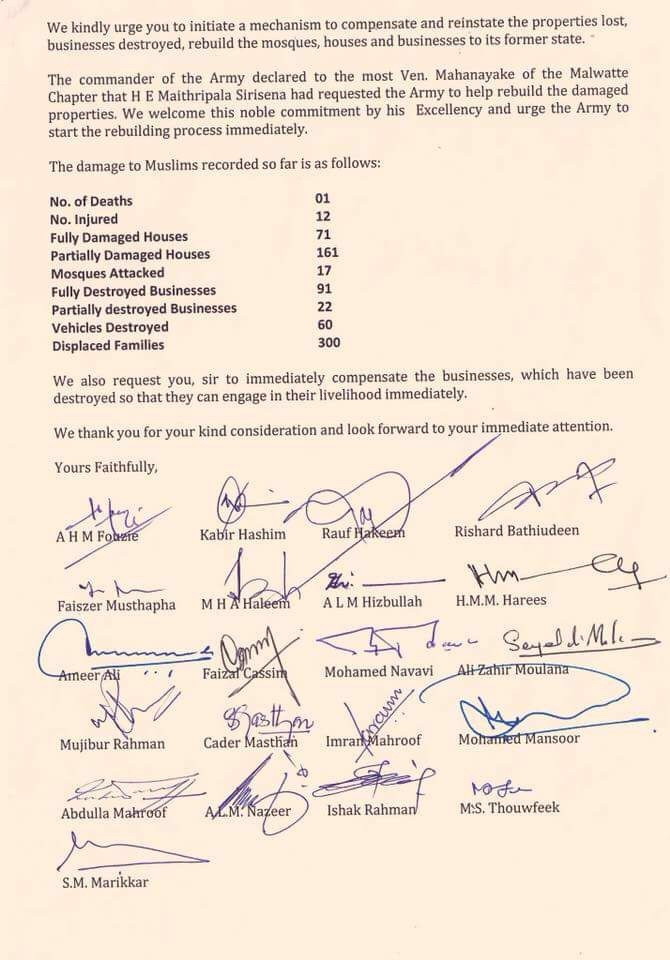 We kindly urge you to initiate a mechanism to compensate and reinstate the properties lost,
businesses destroyed, rebuild the mosques, houses and businesses to its former state.
The commander of the Army declared to the most Ven. Mahanayake of the Malwatte
Chapter that H E Maithripala Sirisena had requested the Army to help rebuild the damaged
properties. We welcome this noble commitment by his Excellency and urge the Army to
start the rebuilding process immediately.
The damage to Muslims recorded so far is as follows:
No. of Deaths 01
No. Injured 12
Fully Damaged Houses 71
Partially Damaged Houses 161
Mosques Attacked 17
Fully Destroyed Businesses 91
Partially destroyed Businesses 22
Vehicles Destroyed 60
Displaced Families 300
We also request you, sir to immediately compensate the businesses, which have been
destroyed so that they can engage in their livelihood immediately.
We thank you for your kind consideration and look forward to your immediate attention.
Yours Faithfully,
A H M Fouzie Kabir Hashim Rauf Hakeem Rishard Bathiudeen
Faiszer Musthapha M H A Haleem A L M Hizbullah H.M.M. Harees
Ameer Ali Faizal Cassim Mohamed Navavi Ali Zahir Moulana
Mujibur Rahman Cader Masthan Imran Mahroof Mohamed Mansoor
Abdulla Mahroof A.L.M. Nazeer Ishak Rahman M.S. Thouwfeek
S.M. Marikkar